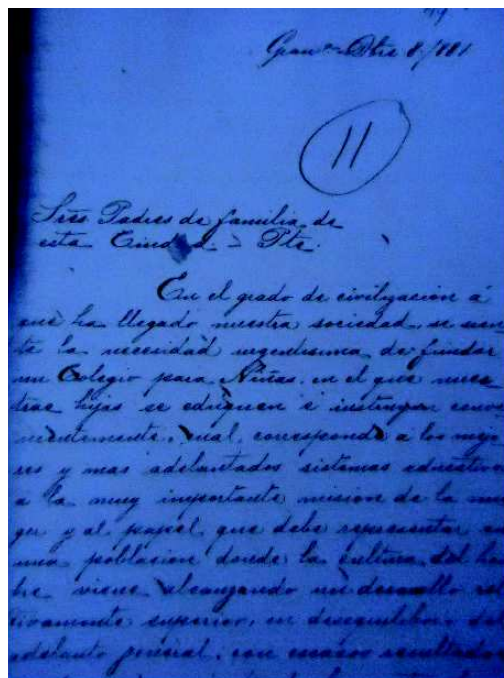 Gran.ª Obre 8/881
11
Sres Padres de familia de
esta Ciudad. = Pte.
En el grado de civilizacion á
que ha llegado nuestra sociedad, se sien
te la necesidad urgentisima de fundar
un Colegio para Niñas, en el que nues
tras hijas se eduquen é instruyan conve
nientemente, cual corresponde á los mejo
res y mas adelantados sistemas educativos
a la muy importante mision de la mu
ger y al papel que debe representar en
una poblacion donde la cultura del hom
bre viene alcanzando un desarrollo
tivamente superior, en desequilibrio del
adelanto general; con escasos resultados